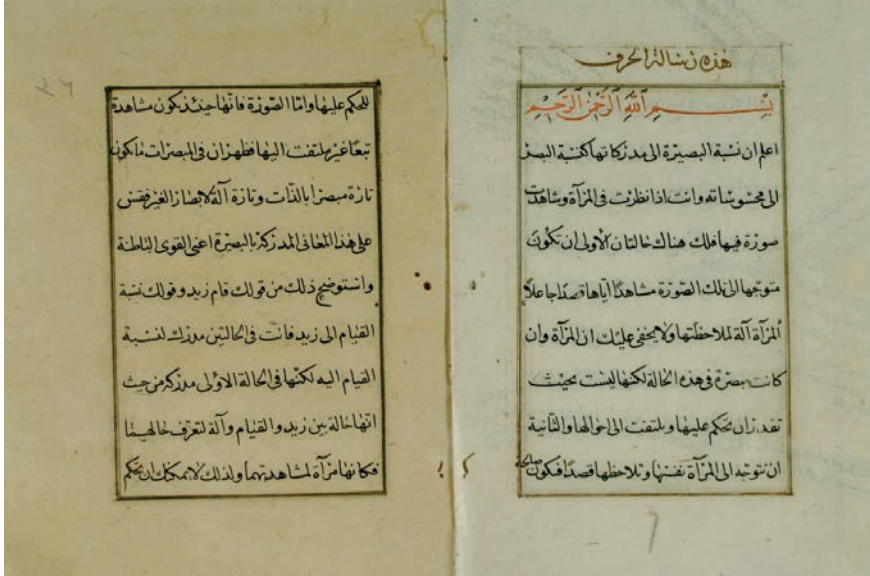 هذه رسالة الحرف
بسم الله الرحمن الرحيم
اعلم ان نسبة البصيرة الى مدركاتها كنسبة البصر
الى محسوساته وانت اذا نظرت فى المرآة وشاهدت
صورة فيها فلك هناك حالتان الأولى ان تكون
متوجها الى تلك الصورة مشاهدًا اياها قصدًا جاعلًا
المرآة آلة لملاحظتها ولا يخفى عليك ان المرآة وان
كانت مبصرة فى هذه الحالة لكنها ليست بحيث
تقدر ان تحكم عليها وتلتفت الى احوالها والثانية
ان تتوجه الى المرآة نفسها وتلاحظها قصدًا فتكون صالحة
للحكم عليها واما الصورة فانها حينئذ يكون مشاهدة
تبعًا غير ملتفت اليها فظهر ان فى المبصرات ما يكون
تارة مبصرا بالذات وتارة آلة لابصار الغير فقس
على هذا المعانى المدركة بالبصيرة اعنى القوى الباطنة
واستوضح ذلك من قولك قام زيد وقولك نسبة
القيام الى زيد فانت فى الحالتين مدرك لنسبة
القيام اليه لكنها فى الحالة الاولى مدركه من حيث
انها حالة بين زيد والقيام وآلة لتعرف حالهما
فكانها مرآة لمشاهدتهما ولذلك لا يمكنك ان تحكم